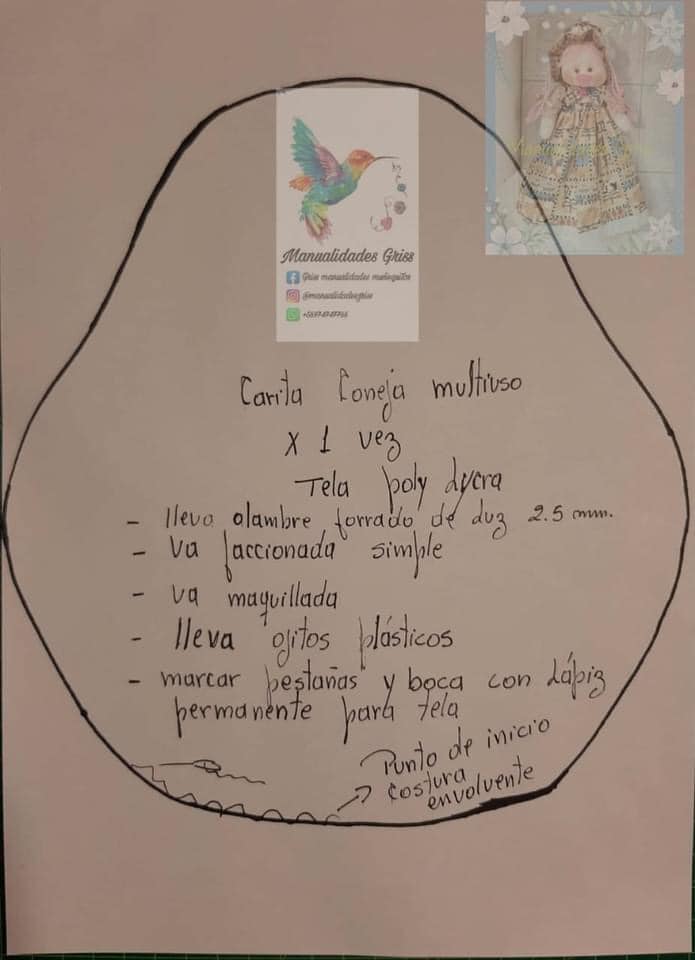 Manualidades Griss
Griss manualidades muñequitos
@manualidadesgriss
Carita Coneja multiuso
x 1 vez
Tela poly lycra
- lleva alambre forrado de duz 2.5 mm.
- Va faccionada simple
- va maquillada
- lleva ojitos plásticos
- marcar pestañas y boca con Lápiz
permanente para tela
Punto de inicio
costura
envolvente